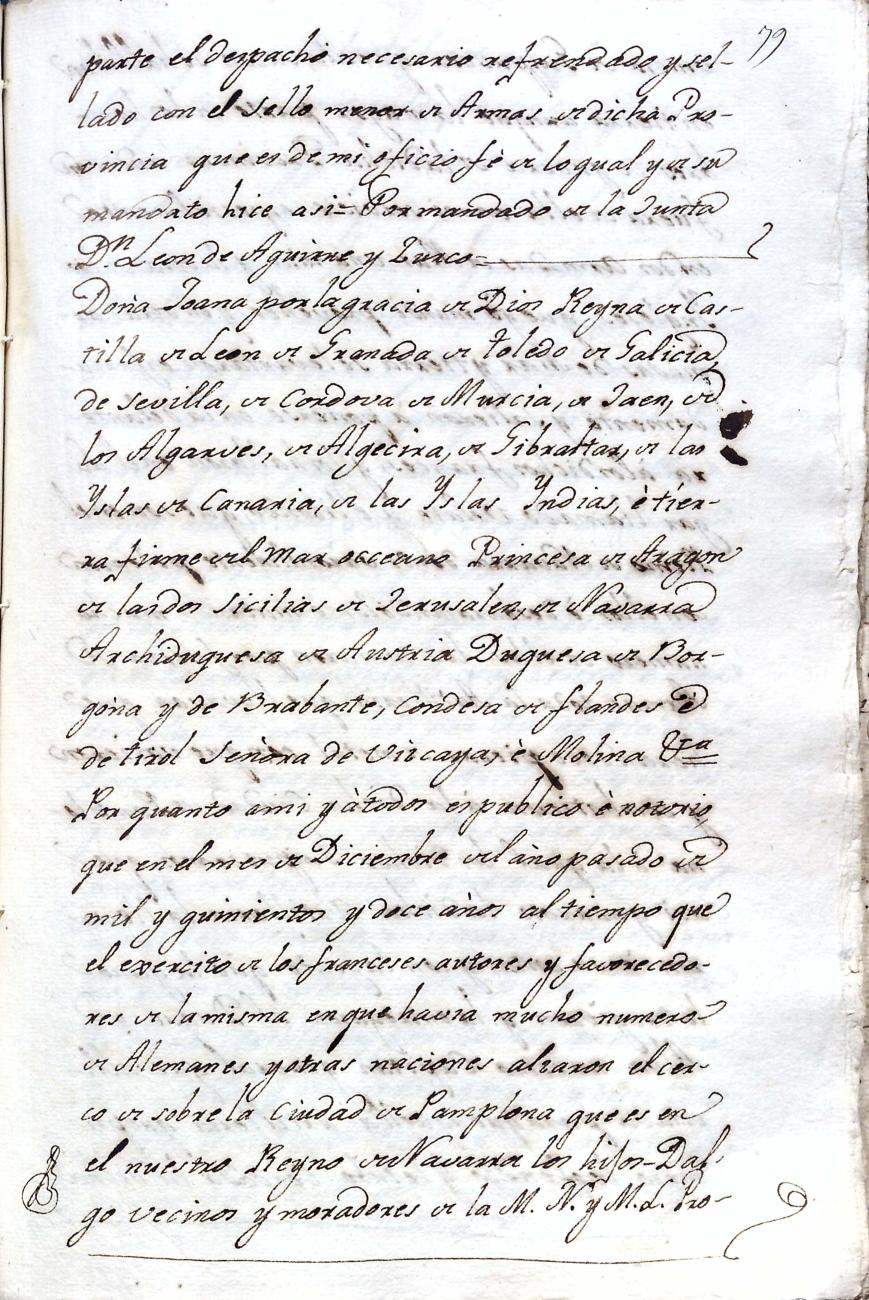 79
parte el despacho necesario refrendado y sel-
lado con el sello menor de Armas de dicha Pro-
vincia que es de mi oficio fè de lo qual y de su
mandato hice asi= Por mandado de la Junta
Dn. Leon de Aguirre y Zurco=
Doña Joana por la gracia de Dios Reyna de Cas-
tilla de Leon de Granada de Toledo de Galicia,
de Sevilla, de Cordova de Murcia, de Jaen, de
los Algarves, de Algecira, de Gibraltar, de las
Yslas de Canaria, de las Yslas Yndias, è tier-
ra firme del mar occeano Princesa de Aragon
de las dos Sicilias de Jerusalen, de Navarra
Archiduquesa de Austria Duquesa de Bor-
goña y de Brabante, Condesa de flandes è
de tiròl Señora de Vizcaya, è Molina &ca
Por quanto a mi y à todos es publico è notorio,
que en el mes de Diciembre del año pasado de
mil y quinientos y doce años al tiempo que
el exercito de los franceses autores y favorecedo-
res de la misma en que havia mucho numero
de Alemanes y otras naciones alzaron el cer-
co de sobre la Ciudad de Pamplona que es en
el nuestro Reyno de Navarra los hijos-Dal-
go vecinos y moradores de la M. N. y M. L. Pro-